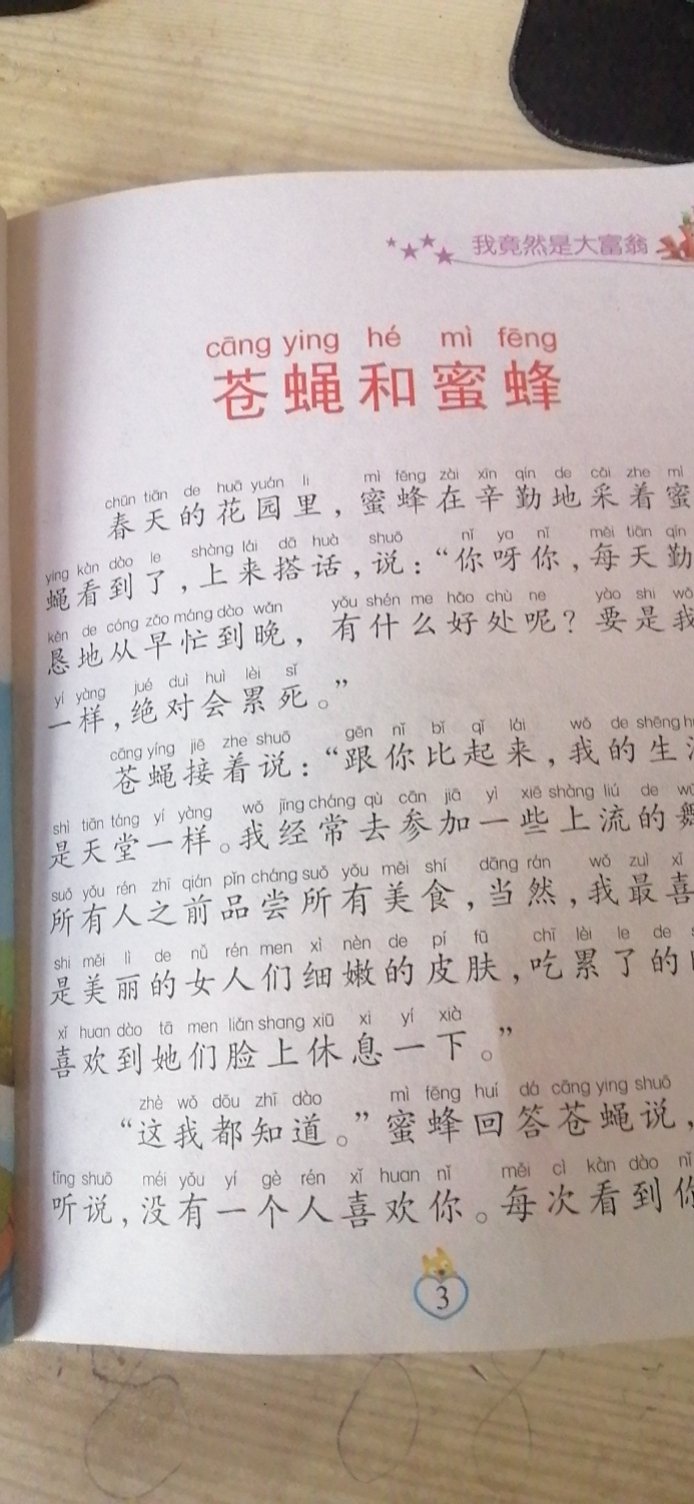 我竟然是大富翁
cāng ying hé mì fēng
苍蝇和蜜蜂
chūn tiān de huā yuán li mì fēng zài xīn qín de cǎi zhe mì
春天的花园里，蜜蜂在辛勤地采着蜜
ying kàn dào le shàng lái dā huà shuō nǐ ya nǐ měi tiān qín
蝇看到了，上来搭话，说：“你呀你，每天勤
kěn de cóng zǎo máng dào wǎn yǒu shén me hǎo chù ne yào shi wǒ
恳地从早忙到晚，有什么好处呢？要是我
yí yàng jué duì huì lèi sǐ
一样，绝对会累死。”
cāng yíng jiē zhe shuō gēn nǐ bǐ qǐ lái wǒ de shēng
苍蝇接着说：“跟你比起来，我的生
shì tiān táng yí yàng wǒ jīng cháng qù cān jiā yì xiē shàng liú de
是天堂一样。我经常去参加一些上流的
suǒ yǒu rén zhī qián pǐn cháng suǒ yǒu měi shí dāng rán wǒ zuì xǐ
所有人之前品尝所有美食，当然，我最喜
shì měi lì de nǚ rén men xì nèn de pí fū chī lèi le de
是美丽的女人们细嫩的皮肤，吃累了的
xǐ huan dào tā men liǎn shang xiū xi yí xià
喜欢到她们脸上休息一下。”
zhè wǒ dōu zhī dào mì fēng huí dá cāng ying shuō
“这我都知道。”蜜蜂回答苍蝇说，
tīng shuō méi yǒu yí gè rén xǐ huan nǐ měi cì kàn dào nǐ
听说，没有一个人喜欢你。每次看到你
3